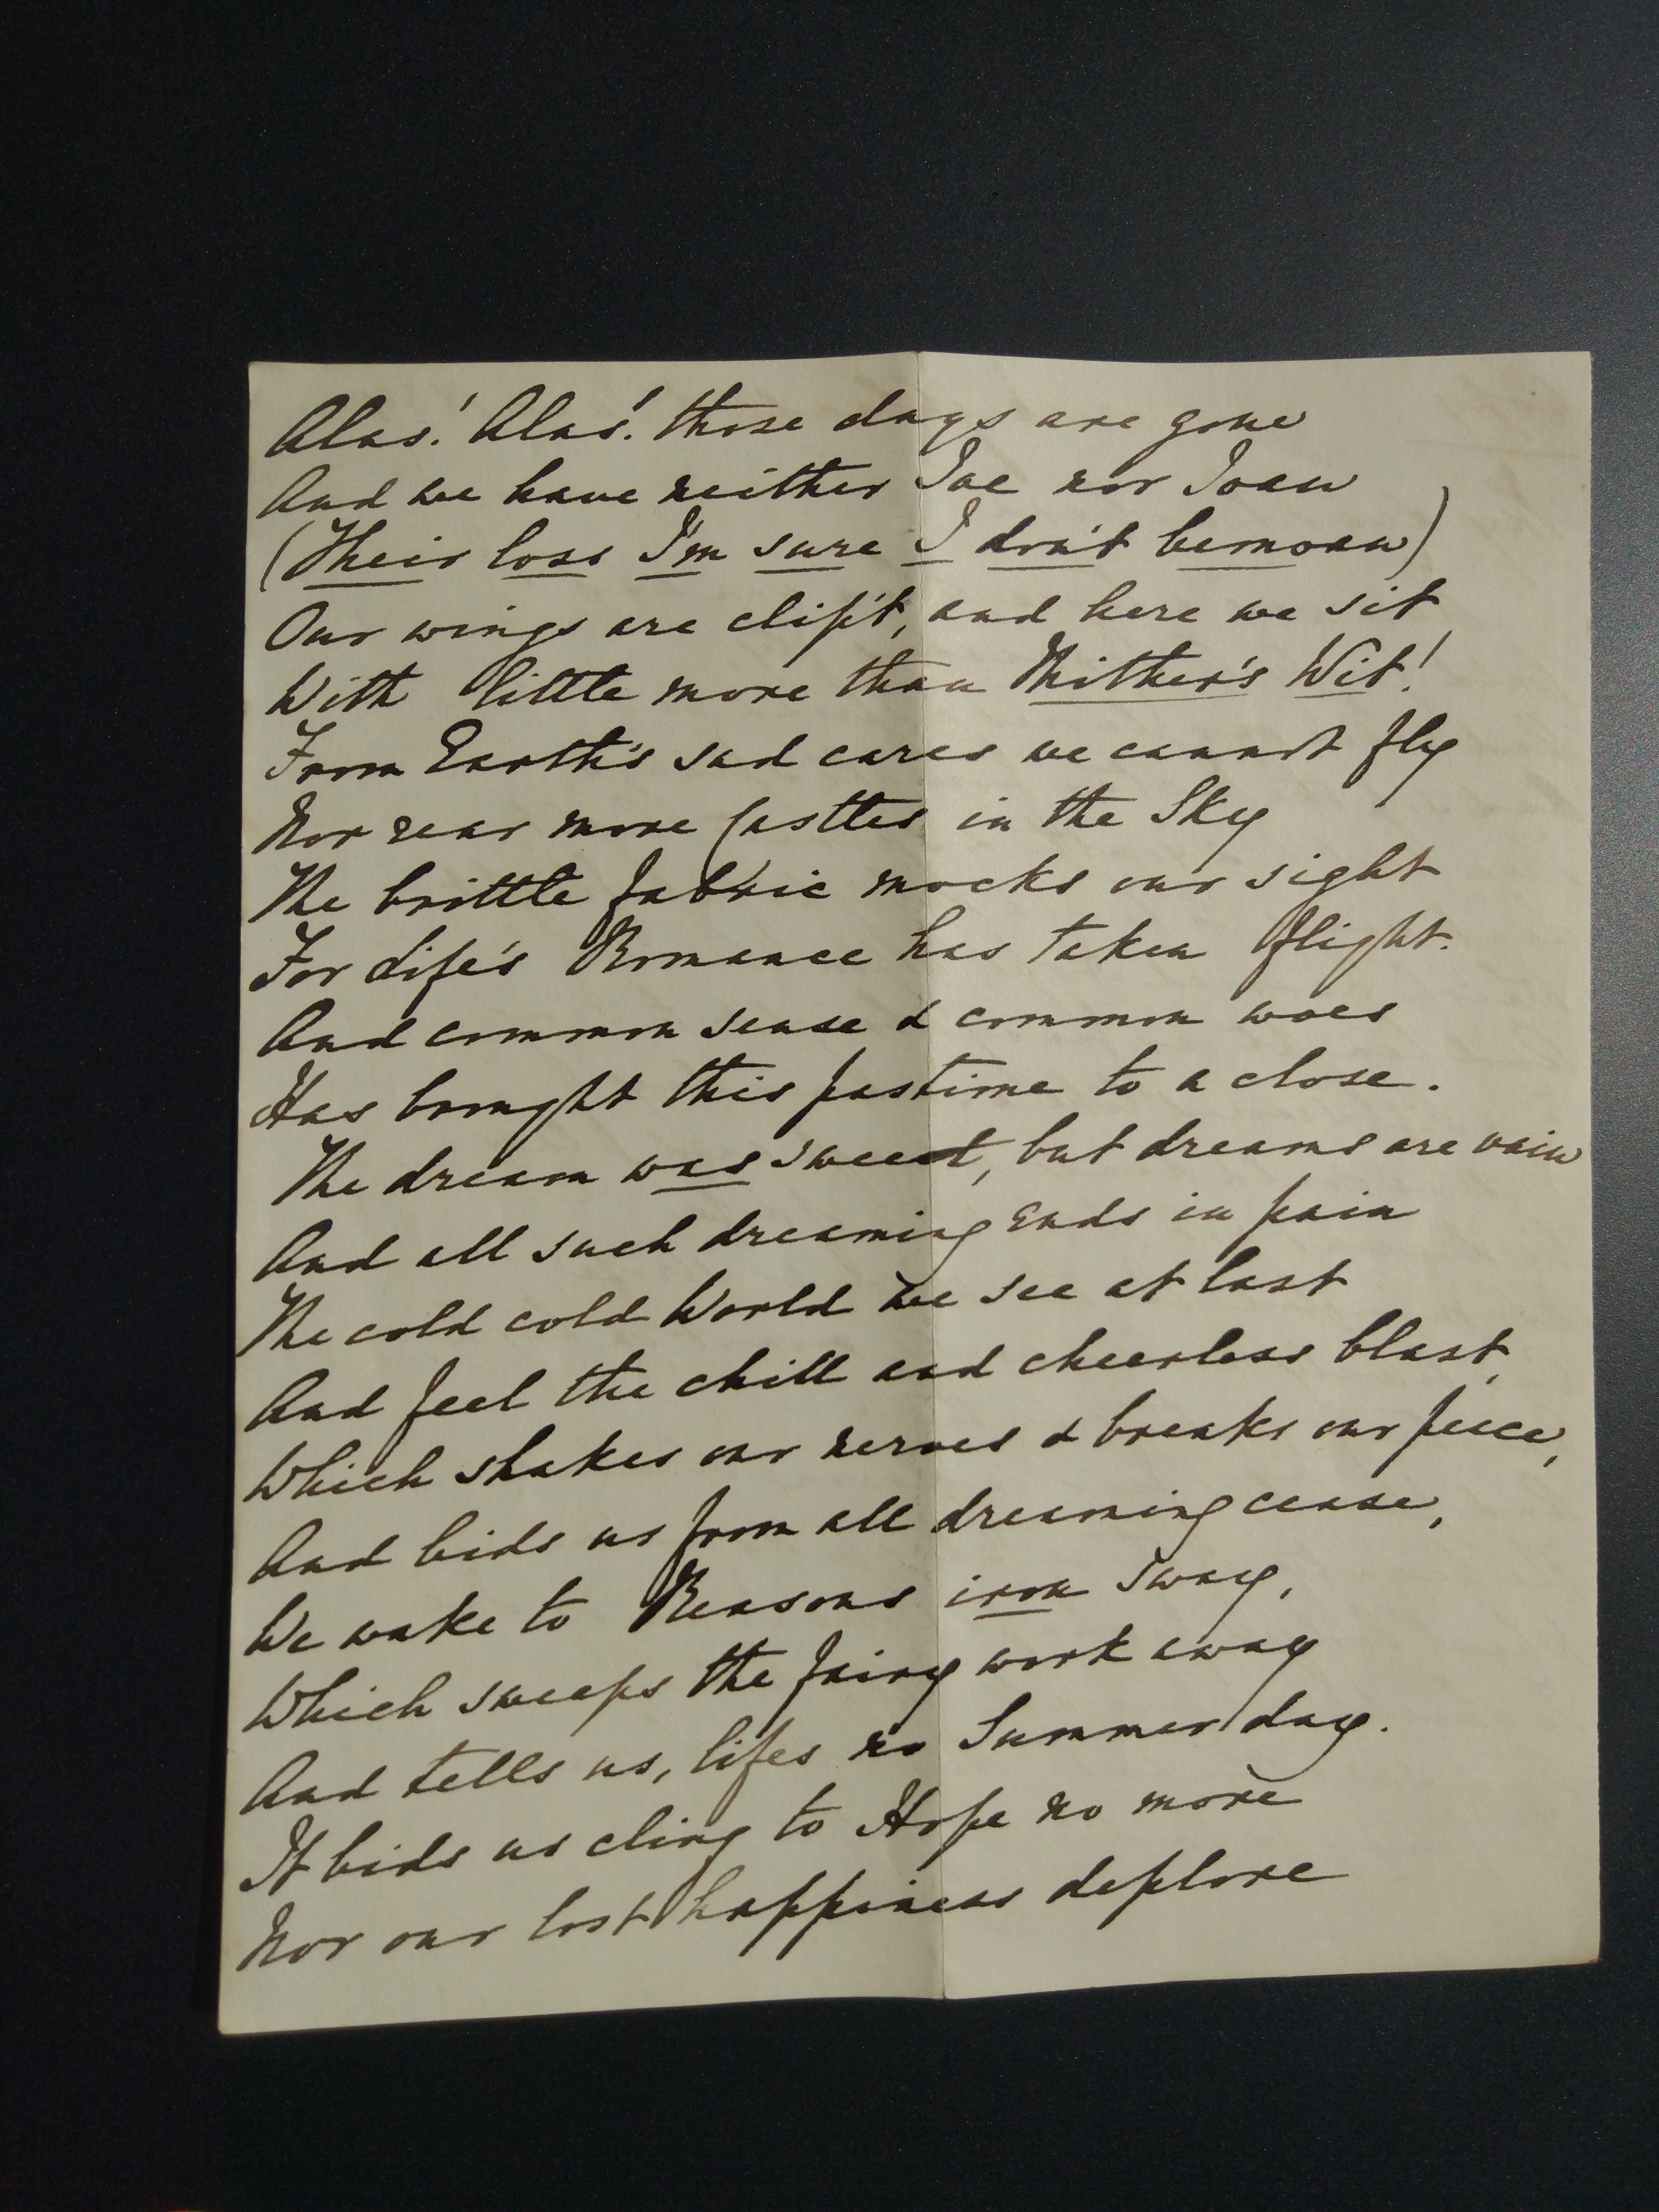 Alas! Alas! those days are gone
And we have neither Joe nor Joan
(Their loss I'm sure I don't bemoan)
Our wings are clip't, and here we sit
With little more than Mither's Wit!
From Earth's sad cares we cannot fly
Nor rear more Castles in the Sky
The brittle fabric mocks our sight
For Life's Romance has taken flight.
And common sense & common woes
Has brought this pastime to a close.
The dream was sweet, but dreams are vain
And all such dreaming ends in pain
The cold cold World we see at last
And feel the chill and cheerless blast,
Which shakes our nerves & breaks our peace,
And bids us from all dreaming cease,
We wake to Reasons iron sway,
Which sweeps the fairy work away
And tells us, lifes no Summer day.
It bids us cling to Hope no more
Nor our lost happiness deplore